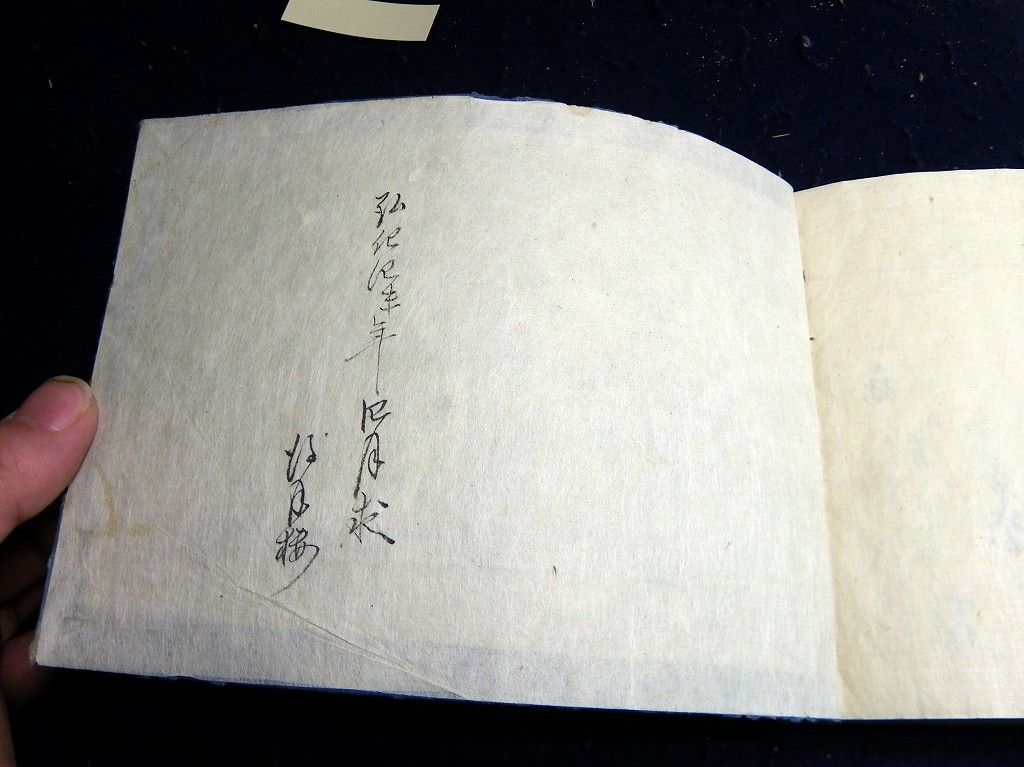 弘化四未年 四月求
待月楼